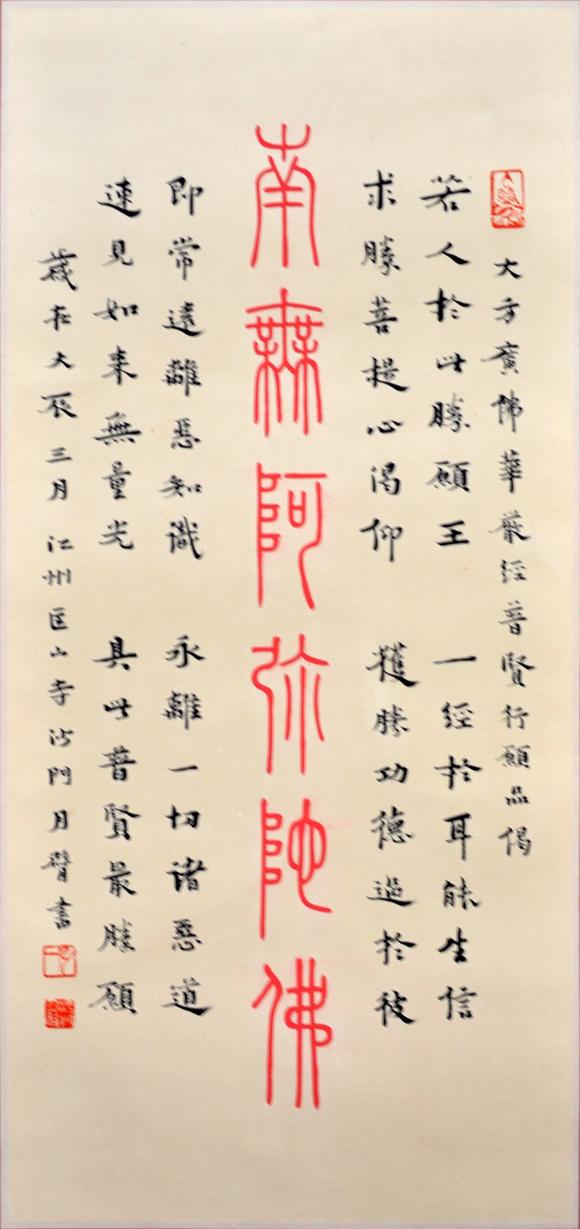 大方廣佛華嚴經普賢行願品偈
若人於此勝願王 一經於耳能生信
求勝菩提心渴仰 獲勝功德過於彼
南無阿弥陀佛
即常遠離惡知識 永離一切諸惡道
速見如来無量光 具此普賢最勝願
歲在大辰三月 江州匡山寺沙門月臂書